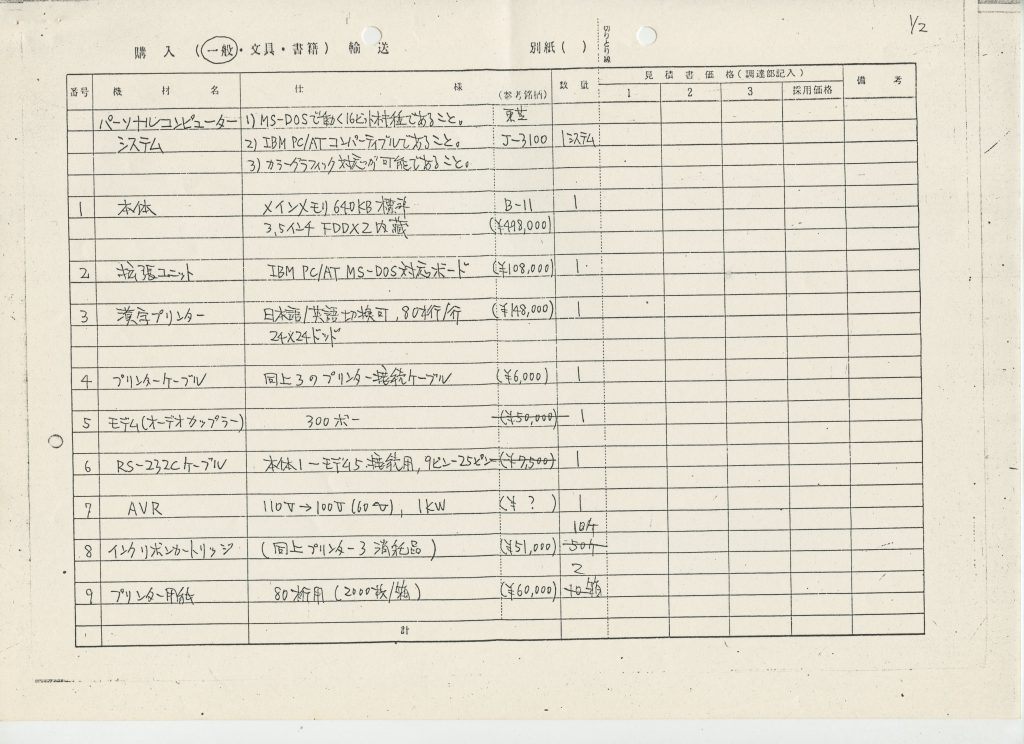 1/2
購入（一般・文具・書籍）輸送 別紙（ ） 切りとり線
番号 機材名 仕様 （参考銘柄） 数量 見積書価格（調達部記入） 備考
1 2 3 採用価格
パーソナルコンピューター 1) MS-DOSで動く16ビット機種であること。 東芝
システム 2) IBM PC/ATコンパーティブルであること。 J-3100 1システム
3) カラーグラフィック対応が可能であること。
1 本体 メインメモリ640KB標準 B-11 1
3.5インチ FDD×2内蔵 (¥498,000)
2 拡張ユニット IBM PC/AT MS-DOS対応ボード (¥108,000) 1
3 漢字プリンター 日本語/英語切換可, 80桁/行 (¥148,000) 1
24×24ドッド
4 プリンターケーブル 同上3のプリンター接続ケーブル (¥6,000) 1
5 モデム(オーデオカップラー) 300ボー (¥50,000) 1
6 RS-232Cケーブル 本体1〜モデム5接続用, 9ピン-25ピン (¥7,500) 1
7 AVR 110V→100V (60〜), 1KW (¥ ? ) 1
10ケ
8 インクリボンカートリッジ (同上プリンター3消耗品) (¥51,000) 50ケ
2
9 プリンター用紙 80桁用 (2000枚/箱) (¥60,000) 10箱
計